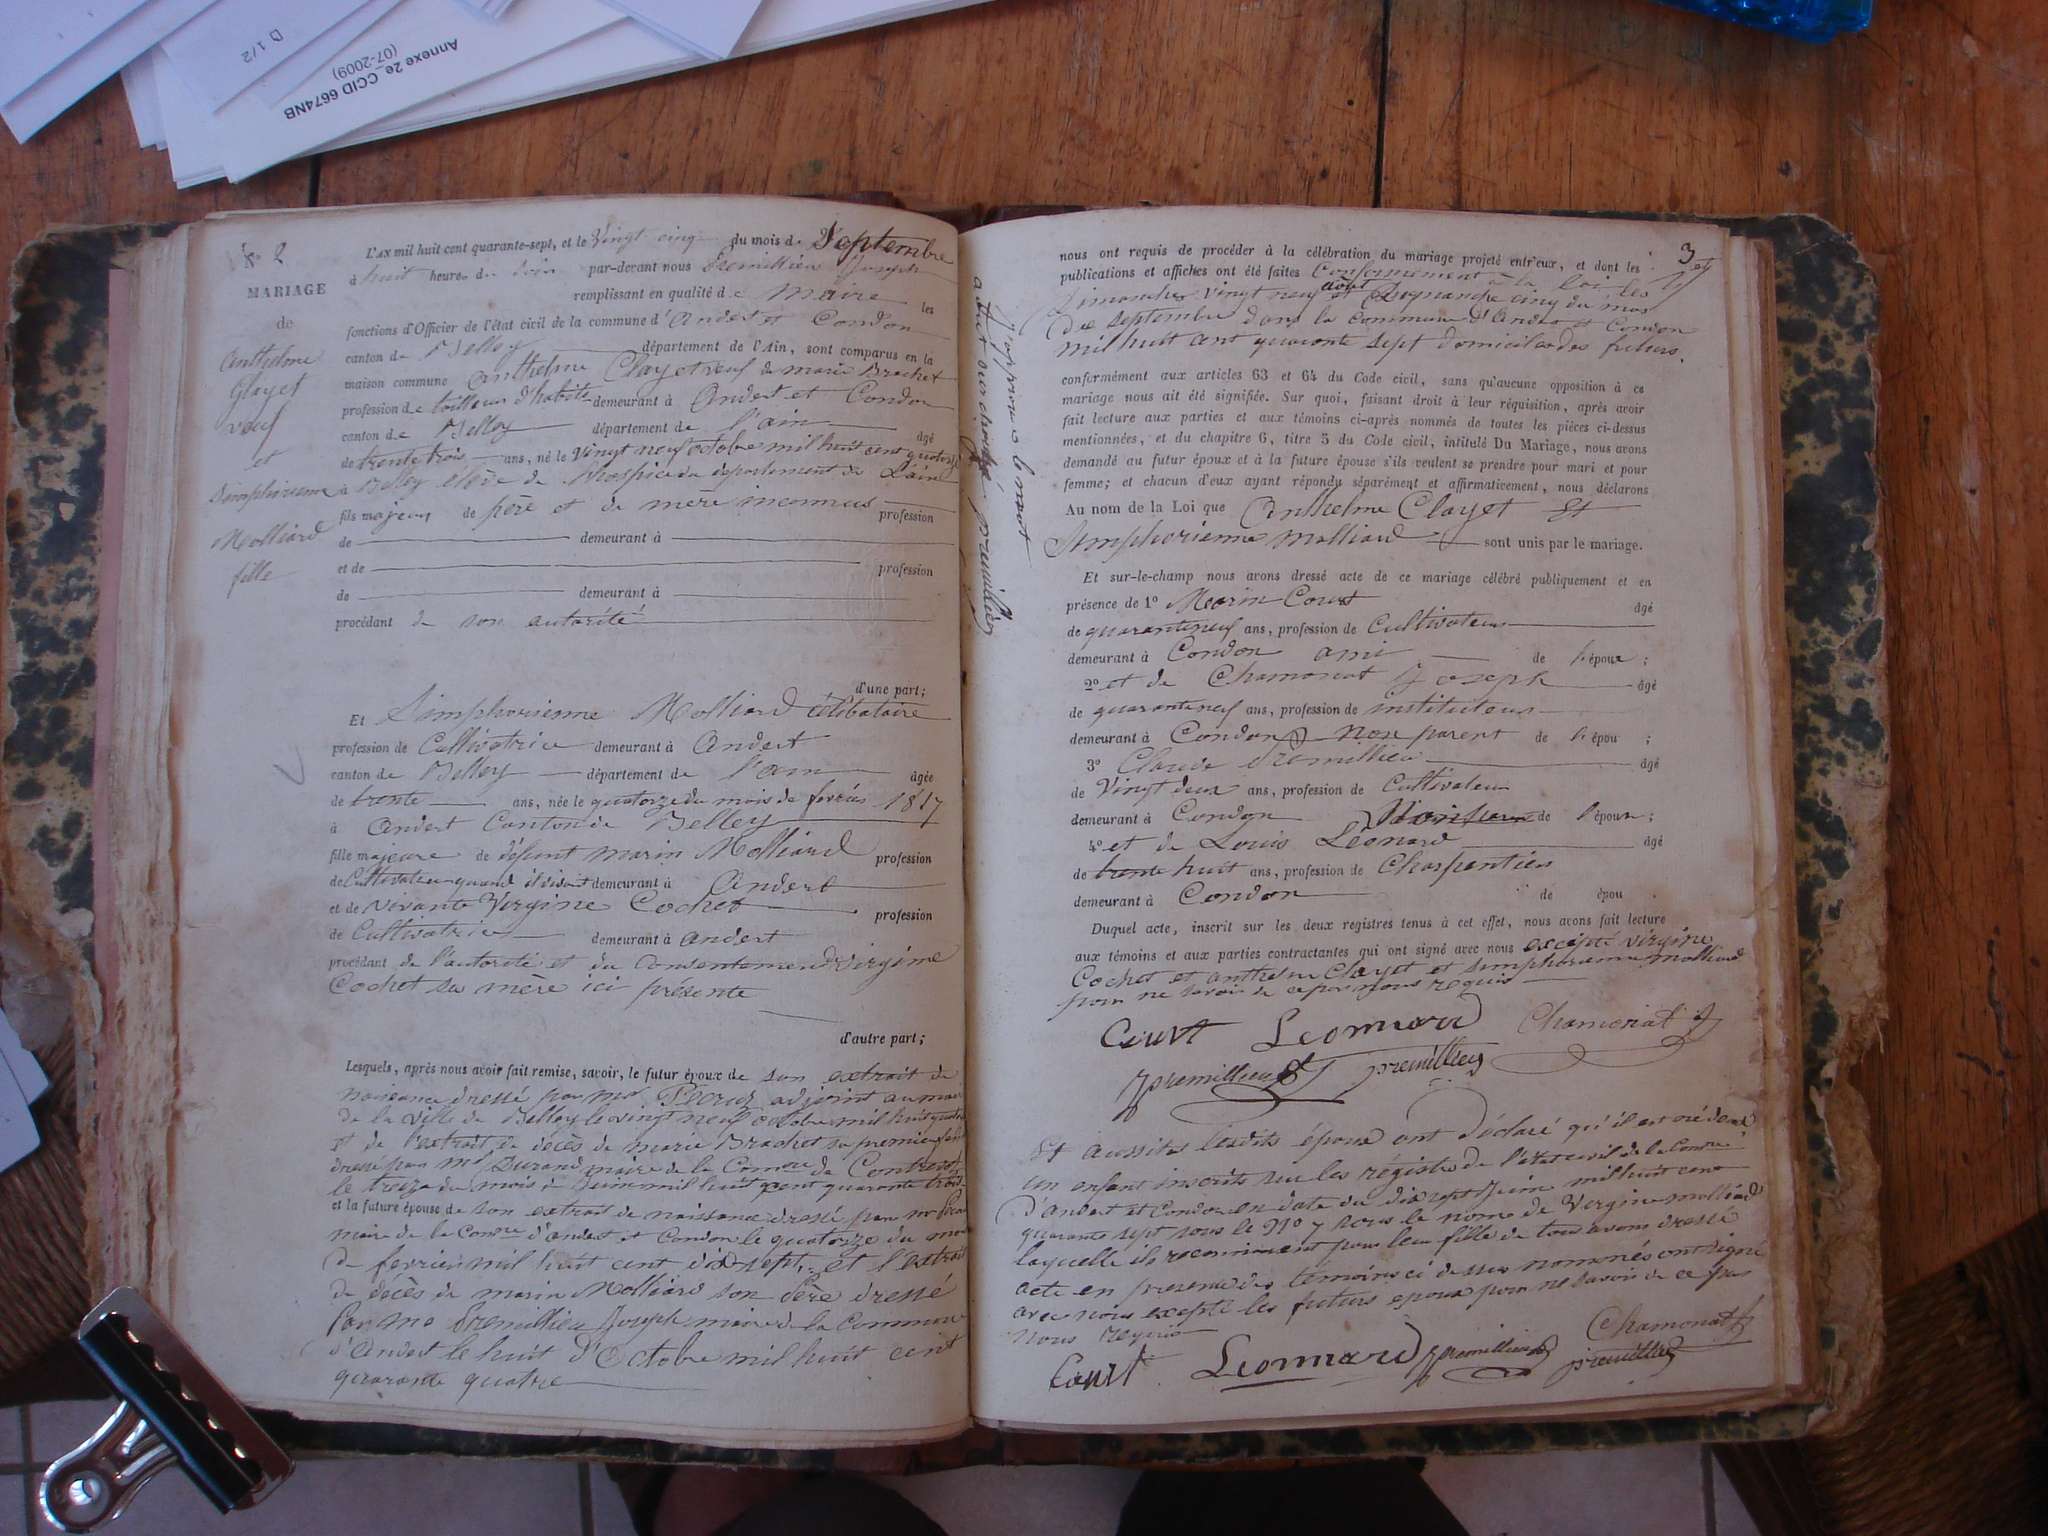 D 1/2
Annexe 2e CCID 6674NB
(07-2009)
N° 2
MARIAGE
de
Anthelme
Clayet
veuf
et
Simphorienne
Molliard
fille
L'an mil huit cent quarante-sept, et le Vingt cinq du mois de Septembre
à huit heures du soir par-devant nous Premillieu Joseph
remplissant en qualité de maire les
fonctions d'Officier de l'état civil de la commune d'Andert et Condon
canton de Belley département de l'Ain, sont comparus en la
maison commune Anthelme Clayet veuf de marie Brachet
profession de tailleur d'habits demeurant à Andert et Condon
canton de Belley département de l'ain âgé
de trente trois ans, né le Vingt neuf octobre mil huit cent quatorze
à Belley élève de l'hospice du département de L'ain
fils majeur de père et de mère inconnus profession
de demeurant à
et de profession
de demeurant à
procédant de son autorité
d'une part;
Et Simphorienne Molliard célibataire
profession de Cultivatrice demeurant à Andert
canton de Belley département de l'ain âgée
de trente ans, née le quatorze du mois de fevrier 1817
à Andert Canton de Belley
fille majeure de défunt marin Molliard profession
de Cultivateur quand il vivait demeurant à Andert
et de vivante Virgine Cochet profession
de Cultivatrice demeurant à andert
procédant de l'autorité et du consentement de virgine
Cochet sa mère ici présente
d'autre part;
Lesquels, après nous avoir fait remise, savoir, le futur époux de son extrait de
naissance dressé par mr adjoint au maire
de la ville de Belley le vingt neuf octobre mil huit quatorze
et de l'extrait de décès de marie Brachet sa premiere femme
dressé par mr Durand maire de la Comne de Contrevoz
le treize du mois de Juin mil huit cent quarante trois
et la future épouse de son extrait de naissance dressé par mr
maire de la Comne d'andert et Condon le quatorze du mois
de fevrier mil huit cent dix sept, et l'extrait
de décès de marin Molliard son Père dressé
Par mr Premillieu Joseph maire de la Commune
d'Andert le huit d'Octobre mil huit cent
quarante quatre
J'approuve le mot
aout surchargé premillieu
3
nous ont requis de procéder à la célébration du mariage projeté entr'eux, et dont les
publications et affiches ont été faites Conformement à la loi les
Dimanches vingt neuf aout et Dimanche cinq du mois
de septembre dans la commune d'Andert et Condon
mil huit cent quarante sept domicile des futurs.
conformément aux articles 63 et 64 du Code civil, sans qu'aucune opposition à ce
mariage nous ait été signifiée. Sur quoi, faisant droit à leur réquisition, après avoir
fait lecture aux parties et aux témoins ci-après nommés de toutes les pièces ci-dessus
mentionnées, et du chapitre 6, titre 5 du Code civil, intitulé Du Mariage, nous avons
demandé au futur époux et à la future épouse s'ils veulent se prendre pour mari et pour
femme; et chacun d'eux ayant répondu séparément et affirmativement, nous déclarons
Au nom de la Loi que Anthelme Clayet Et
Simphorienne Molliard sont unis par le mariage.
Et sur-le-champ nous avons dressé acte de ce mariage célébré publiquement et en
présence de 1° Marin Court âgé
de quarante neuf ans, profession de Cultivateur
demeurant à Condon ami de l'époux;
2° et de Chamonat Joseph âgé
de quarante neuf ans, profession de instituteur
demeurant à Condon non parent de l'épou ;
3° Claude Premillieu âgé
de Vingt deux ans, profession de Cultivateur
demeurant à Condon de l'époux;
4° et de Louis Léonard âgé
de trente huit ans, profession de Charpentier
demeurant à Condon de épou .
Duquel acte, inscrit sur les deux registres tenus à cet effet, nous avons fait lecture
aux témoins et aux parties contractantes qui ont signé avec nous excepté virgine
Cochet et anthelme Clayet et simphorienne Molliard
pour ne savoir de ce par nous requis
Court Leonnard Chamonat J
premillieu premillieu
Et aussitot lesdits époux ont déclaré qu'il est né deux
un enfant inscrits sur les régistre de l'état civil de la Comne
d'andert et Condon en date du dix sept Juin mil huit cent
quarante sept sous le N° 7 sous le nom de Vergine Molliard
laquelle ils reconnaissent pour leur fille de tout avons dressé
acte en presence des témoins ci dessus nommés ont signé
avec nous excepté les futurs epoux pour ne savoir de ce par
nous requis
Court Leonnard premillieu Chamonat J
premillieu